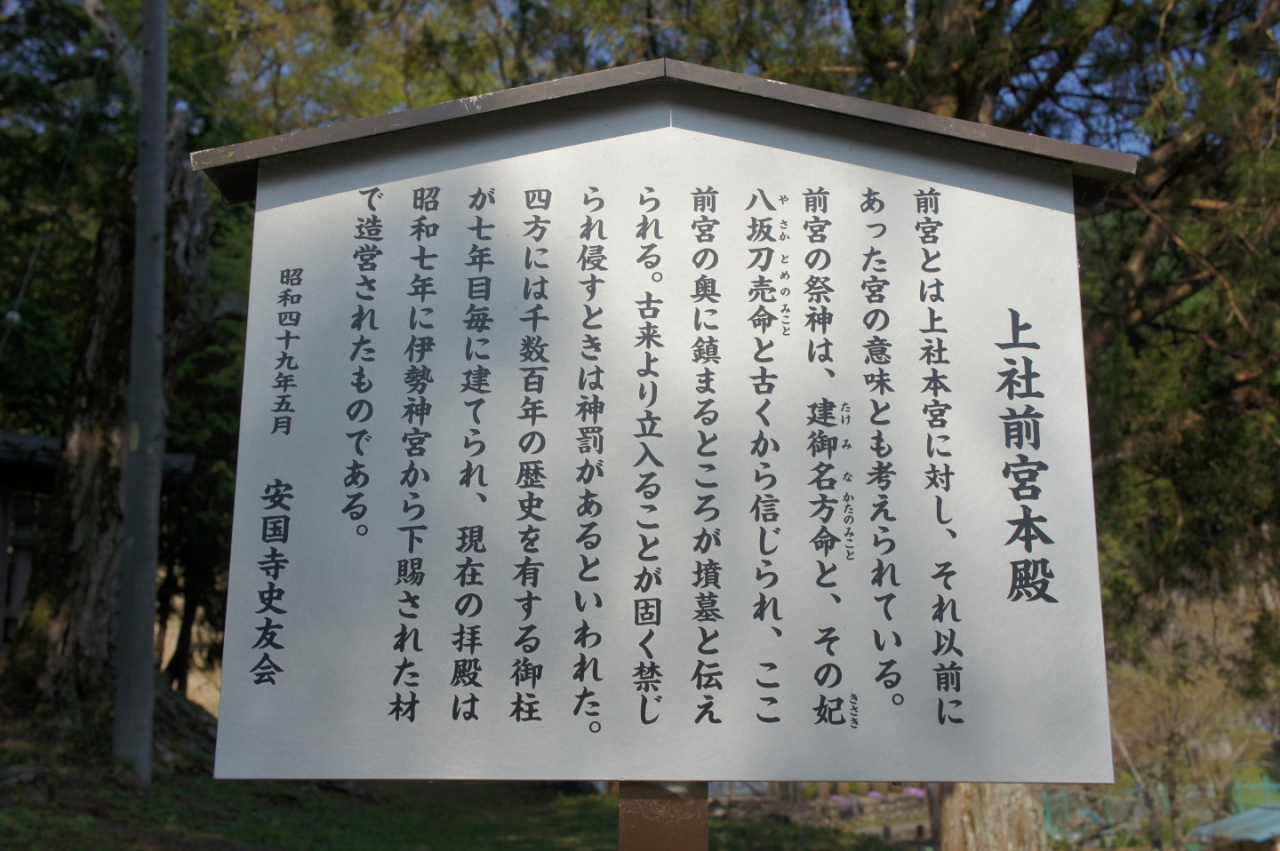 上社前宮本殿
前宮とは上社本宮に対し、それ以前に
あった宮の意味とも考えられている。
前宮の祭神は、建御名方命と、その妃
たけみなかたのみこと
きさき
八坂刀売命と古くから信じられ、ここ
やさかとめのみこと
前宮の奥に鎮まるところが墳墓と伝え
られる。古来より立入ることが固く禁じ
られ侵すときは神罰があるといわれた。
四方には千数百年の歴史を有する御柱
が七年目毎に建てられ、現在の拝殿は
昭和七年に伊勢神宮から下賜された材
で造営されたものである。
昭和四十九年五月
安国寺史友会